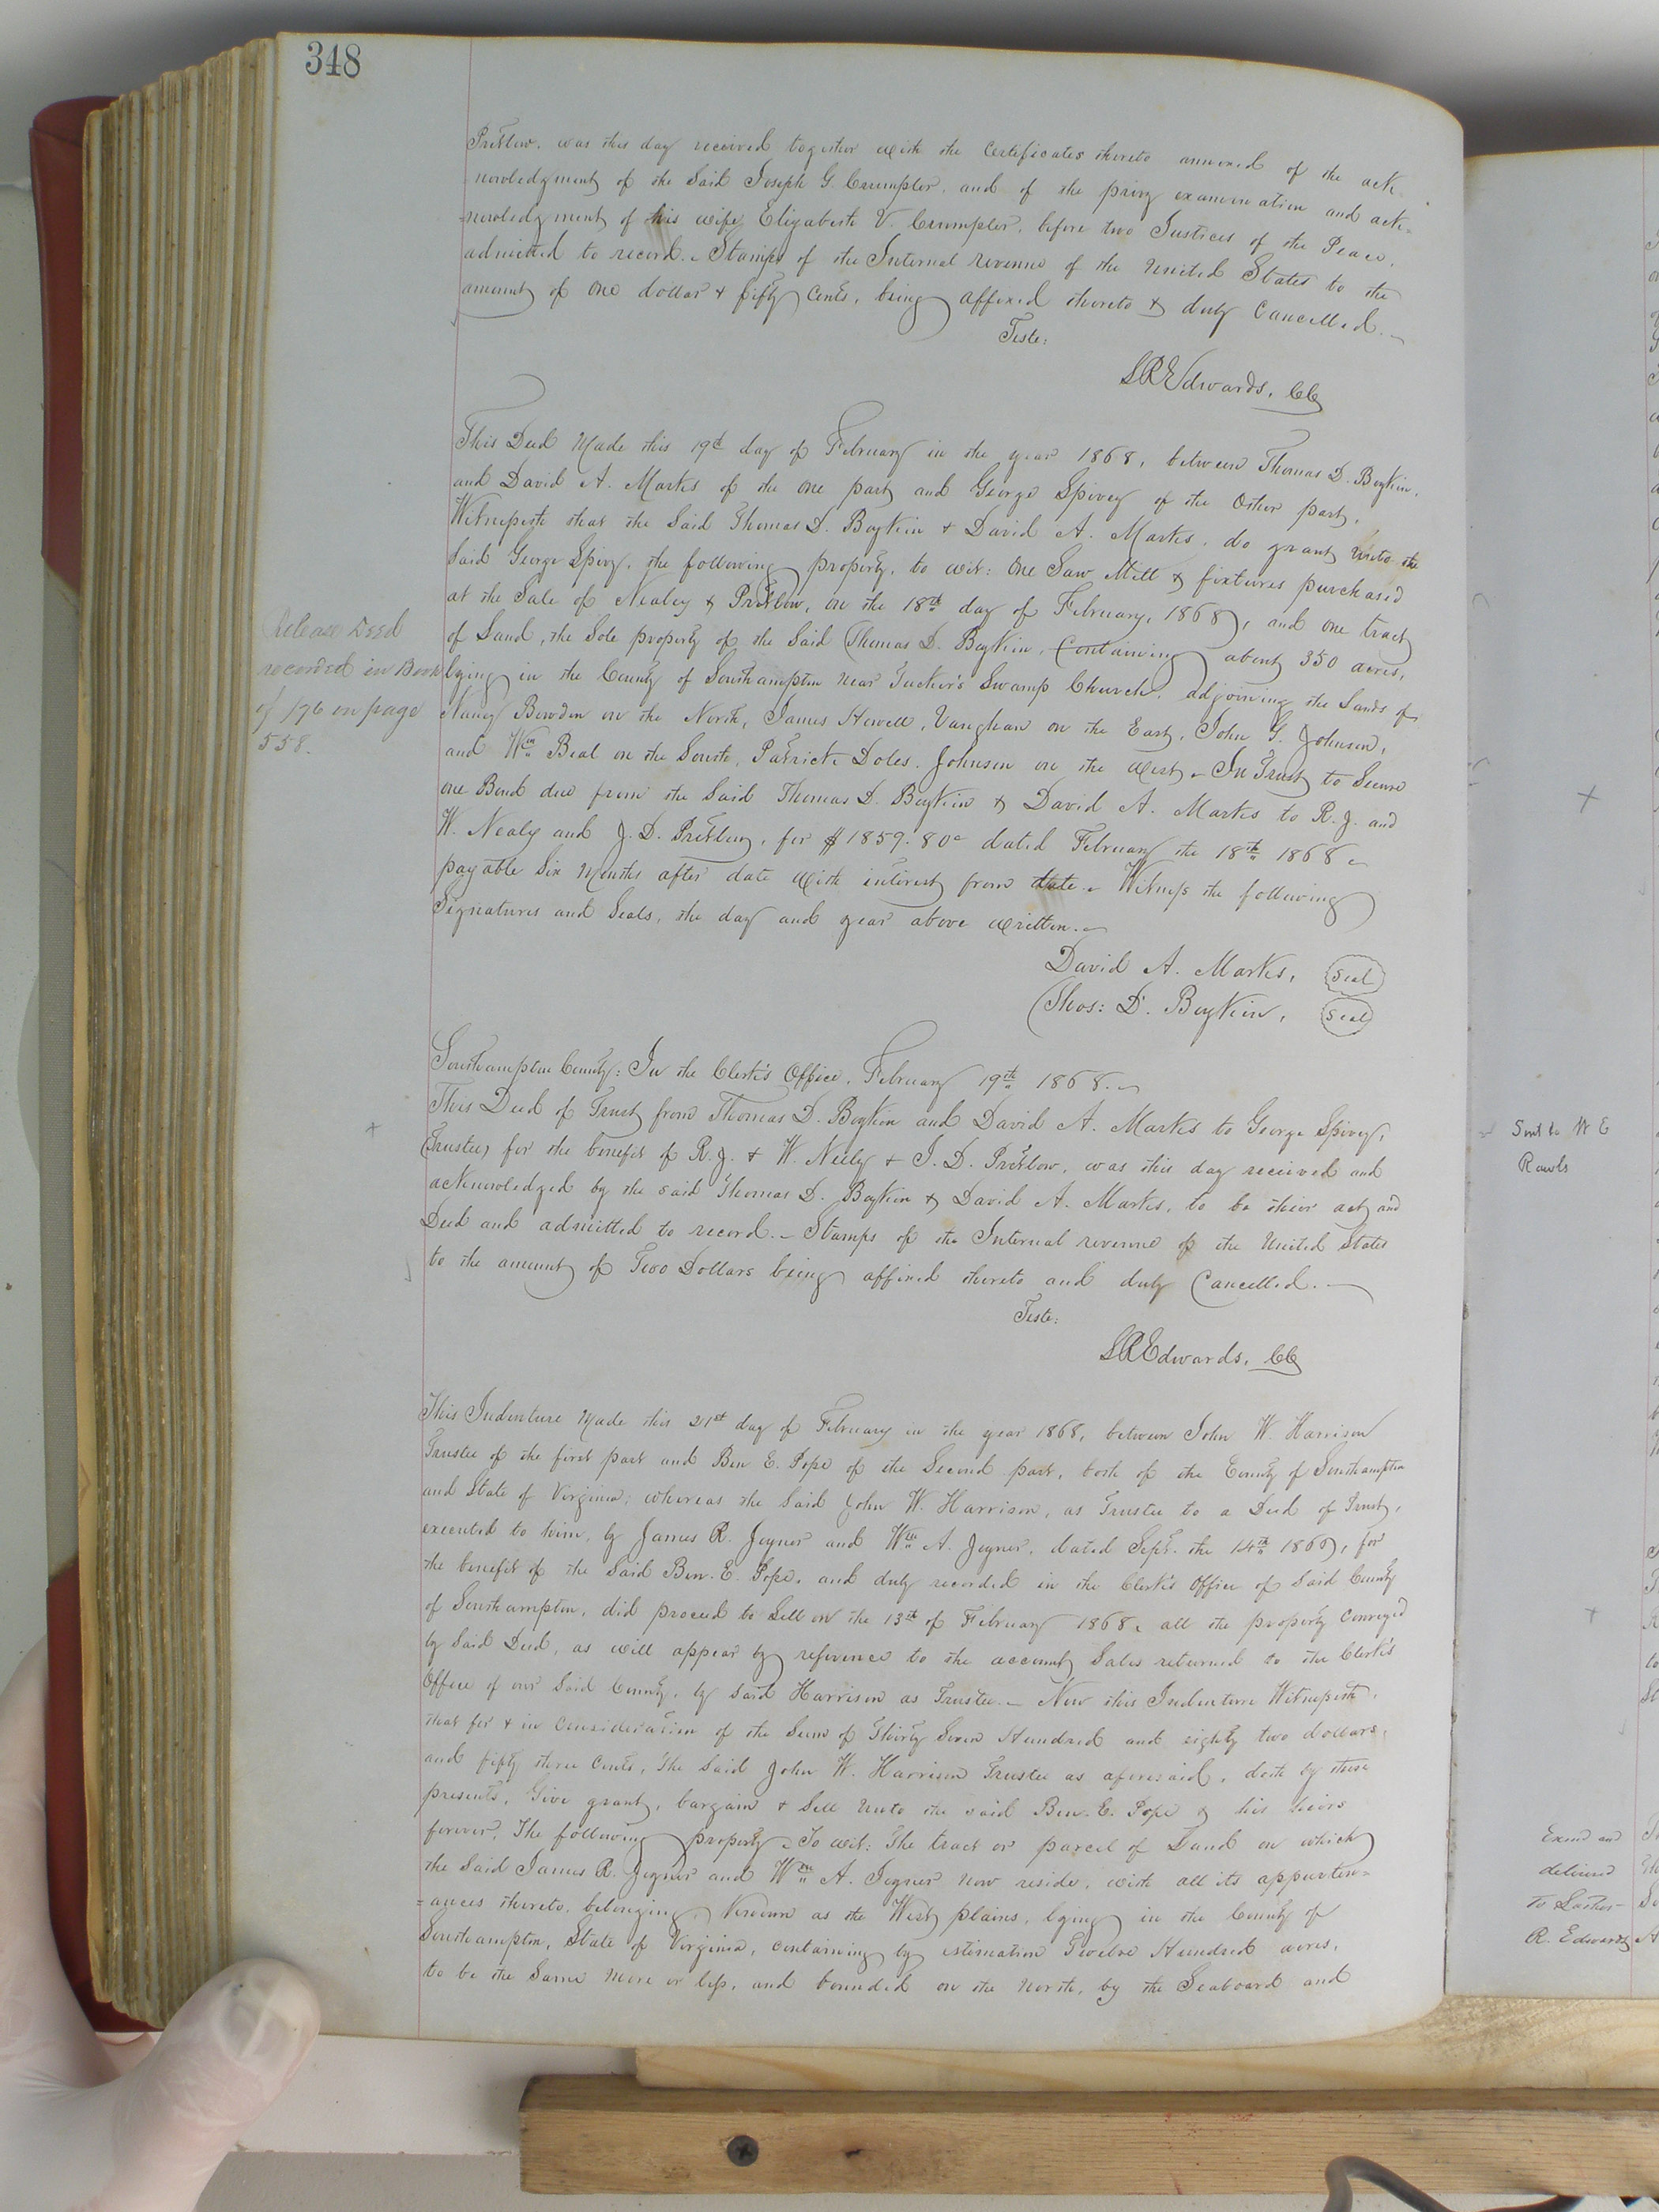 348
Pretlow, was this day received together with the Certificates thereto annexed of the ack-
nowledgment of the Said Joseph G. Crumpler, and of the privy examination and ack-
=nowledgment of his wife Elizabeth V. Crumpler, before two Justices of the Peace,
admitted to record. Stamps of the Internal revenue of the United States to the
amount of one dollar & fifty Cents, being affixed thereto & duly Cancelled.
Teste:
LREdwards, CC
This Deed Made this 19th day of February in the year 1868, between Thomas D. Boykin,
and David A. Marks of the one part and George Spivey of the Other part,
Witnesseth that the Said Thomas D. Boykin & David A. Marks, do grant unto the
Said George Spivey, the following property, to wit: One Saw Mill & fixtures purchased
at the Sale of Nealey & Pretlow, on the 18th day of February, 1868, and one tract
of Land, the Sole property of the Said Thomas D. Boykin, Containing about 350 acres,
lying in the County of Southampton near Tucker's Swamp Church, adjoining the Lands of
Nancy Bowden on the North, James Howell, Vaughan on the East, John G. Johnson,
and Wm Beal on the South, Patrick Doles, Johnson on the West. In Trust to Secure
one Bond due from the Said Thomas D. Boykin & David A. Marks to R. J. and
W. Nealy and J. D. Pretlow, for $1859.80c dated February the 18th 1868
payable Six Months after date with interest from date. Witness the following
Signatures and Seals, the day and year above written.
David A. Marks, Seal
Thos: D. Boykin, Seal
Release Deed
recorded in Book
of 196 on page
558.
Southampton County: In the Clerk's Office, February 19th 1868.
This Deed of Trust from Thomas D. Boykin and David A. Marks to George Spivey,
(Trustee) for the benefit of R. J. & W. Neely & J. D. Pretlow, was this day received and
acknowledged by the said Thomas D. Boykin & David A. Marks, to be their act and
Deed and admitted to record. Stamps of the Internal revenue of the United States
to the amount of Two Dollars being affixed thereto and duly Cancelled.
Teste:
LREdwards, CC
This Indenture Made this 21st day of February in the year 1868, between John W. Harrison
Trustee of the first part and Ben E. Pope of the Second part, both of the County of Southampton
and State of Virginia; whereas the Said John W. Harrison, as Trustee to a Deed of Trust,
executed to him, by James R. Joyner and Wm A. Joyner, dated Sept. the 14th for
the benefit of the Said Ben. E. Pope, and duly recorded in the Clerk's Office of Said County
of Southampton, did proceed to Sell on the 13th of February 1868, all the property Conveyed
by Said Deed, as will appear by reference to the account Sales returned to the Clerk's
Office of our Said County, by Said Harrison as Trustee. Now this Indenture Witnesseth,
that for & in Consideration of the Sum of Thirty Seven Hundred and eighty two dollars,
and fifty three Cents, The Said John W. Harrison Trustee as aforesaid, doth by these
presents, Give grant, bargain & Sell unto the said Ben. E. Pope & his heirs
forever, The following property, To wit: The tract or parcel of Land on which
the Said James R. Joyner and Wm A. Joyner now reside, with all its appurten=
=ances thereto, belonging, Known as the West plains, lying in the County of
Southampton, State of Virginia, containing by estimation Twelve Hundred acres,
to be the Same More or less, and bounded on the North, by the Seaboard and
Sent to W E
Rawls
Exend and
delivered
To
R. Edwards